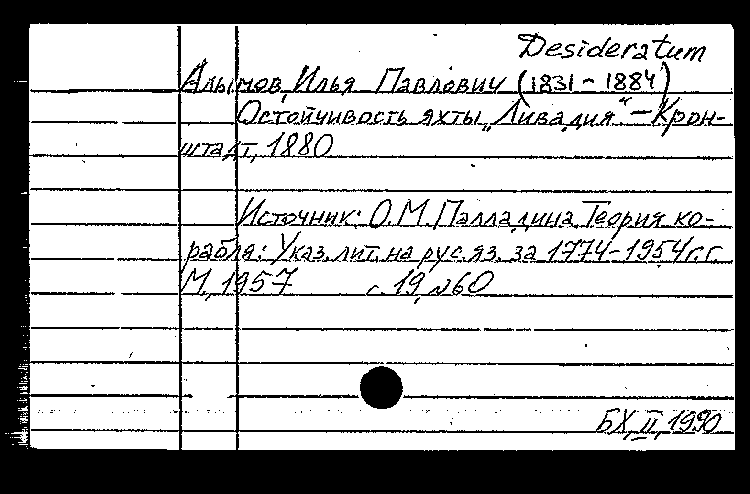 Desideratum
Алымов, Илья Павлович (1831-1884)
Остойчивость яхты „Ливадия“. - Крон-
штадт, 1880
Источник: О.М. Палладина. Теория ко-
рабля: Указ. лит. на рус. яз. за 1774-1954 г.г.
М., 1957 с. 19, №60
БХ, II, 1990